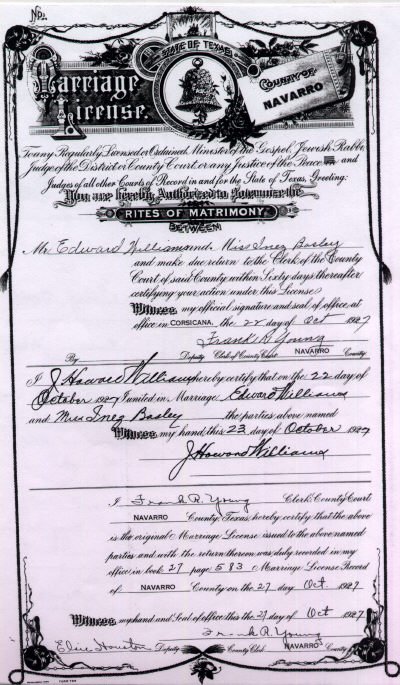 No.
STATE OF TEXAS
Marriage License.
COUNTY OF
NAVARRO
To any Regularly Licensed or Ordained Minister of the Gospel, Jewish Rabbi,
Judge of the District or County Court or any Justice of the Peace and
Judges of all other Courts of Record in and for the State of Texas, Greeting:
You are hereby Authorized to Solemnize the
RITES OF MATRIMONY
BETWEEN
Mr. Edward Williams and Miss Inez Basley
and make due return to the Clerk of the County
Court of said County within Sixty days thereafter
certifying your action under this License
Witness my official signature and seal of office at
office in CORSICANA, the 22 day of Oct 1927
Frank R. Young
By Deputy Clerk of County Court NAVARRO County
I J Howard Williams hereby certify that on the 22 day of
October 1927 I united in Marriage Edward Williams
and Miss Inez Basley the parties above named
Witness my hand this 23 day of October 1927
J Howard Williams
I Frank R. Young Clerk County Court
NAVARRO County, Texas, hereby certify that the above
is the original Marriage License issued to the above named
parties and with the return thereon was duly recorded in my
office in book 27 page 583 Marriage License Record
of NAVARRO County on the 27 day Oct. 1927
Witness my hand and Seal of office this the 27 day of Oct 1927
Frank R. Young
Elsie Houston Deputy County Clerk NAVARRO County